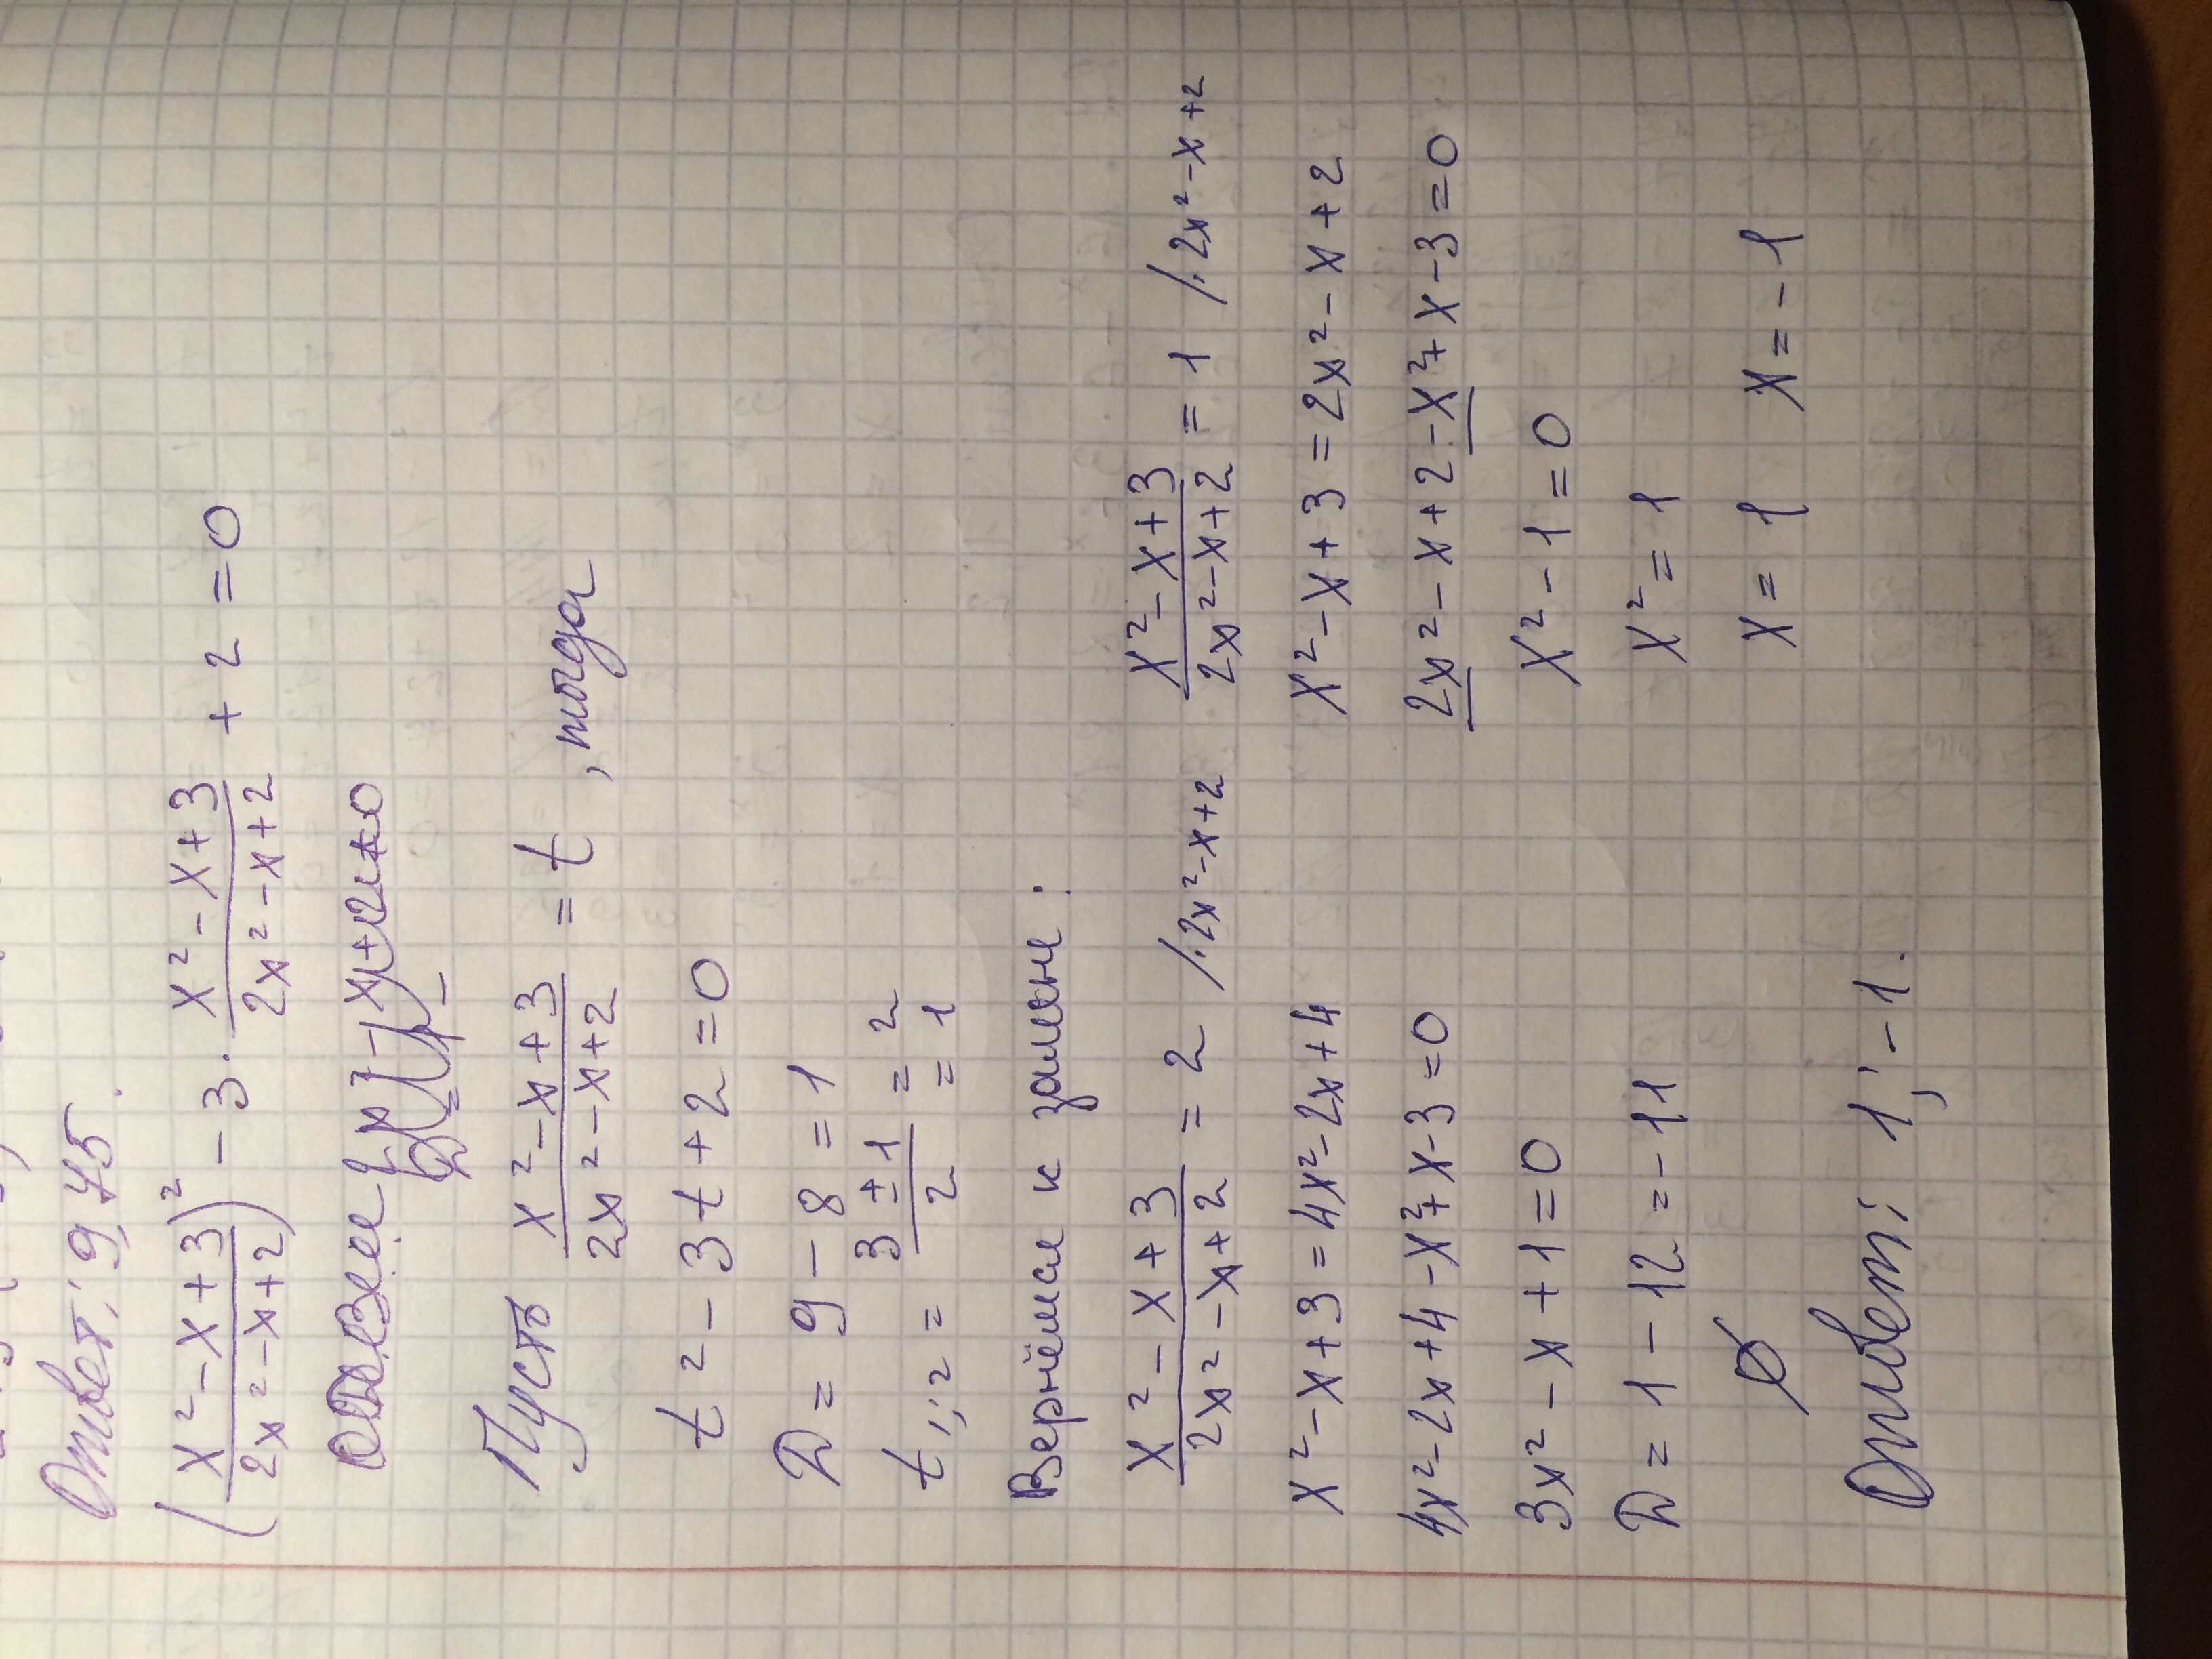 Ответ: 9,75.
(x² - x + 3 / 2x² - x + 2)² - 3 · x² - x + 3 / 2x² - x + 2 + 2 = 0
Пусть x² - x + 3 / 2x² - x + 2 = t, тогда
t² - 3t + 2 = 0
D = 9 - 8 = 1
t₁;₂ = 3 ± 1 / 2 = 2 = 1
Вернёмся к замене:
x² - x + 3 / 2x² - x + 2 = 2 /· 2x² - x + 2
x² - x + 3 = 4x² - 2x + 4
4x² - 2x + 4 - x² + x - 3 = 0
3x² - x + 1 = 0
D = 1 - 12 = -11
∅
x² - x + 3 / 2x² - x + 2 = 1 /· 2x² - x + 2
x² - x + 3 = 2x² - x + 2
2x² - x + 2 - x² + x - 3 = 0
x² - 1 = 0
x² = 1
x = 1 x = -1
Ответ: 1; -1.